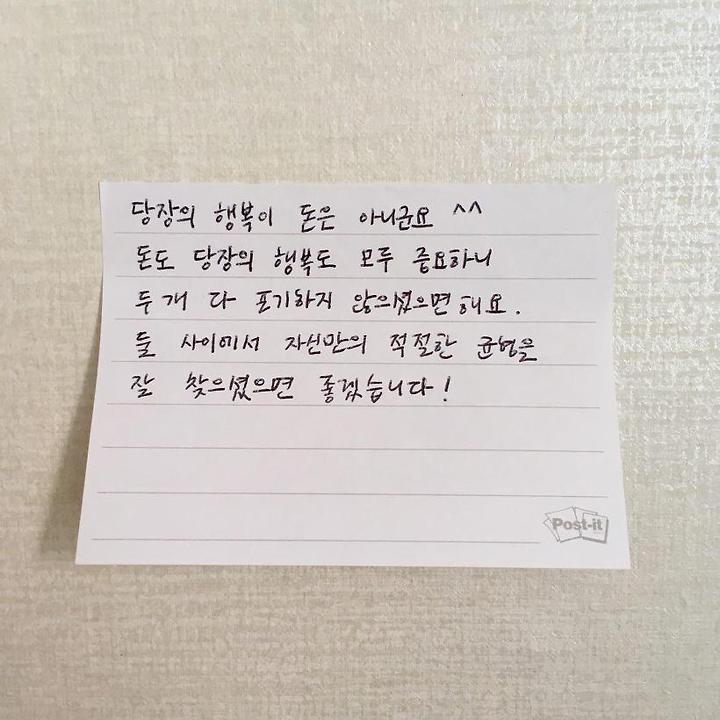 당장의 행복이 돈은 아니군요 ^^
돈도 당장의 행복도 모두 중요하니
두개 다 포기하지 않으셨으면 해요.
둘 사이에서 자신만의 적절한 균형을
잘 찾으셨으면 좋겠습니다!
Post-it